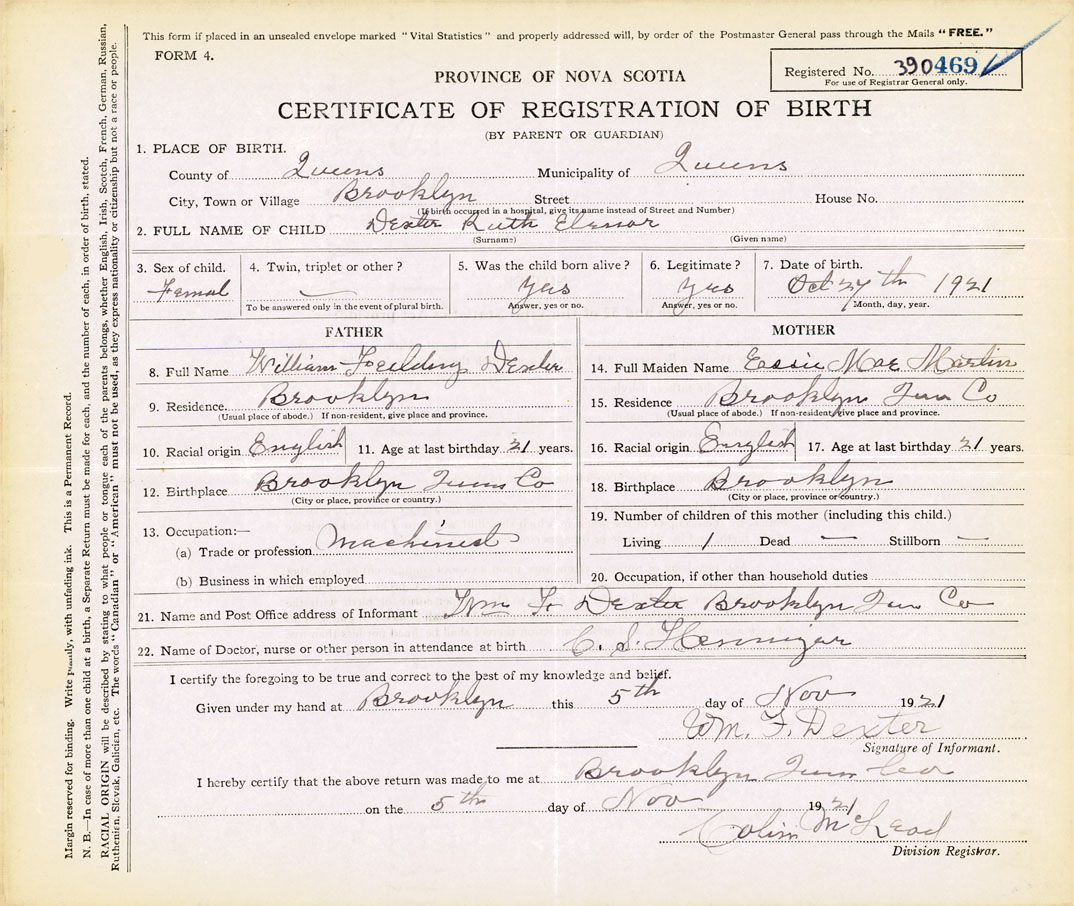 This form if placed in an unsealed envelope marked "Vital Statistics" and properly addressed will, by order of the Postmaster General pass through the Mails "FREE."
FORM 4.
Registered No. 390469
For use of Registrar General only.
PROVINCE OF NOVA SCOTIA
CERTIFICATE OF REGISTRATION OF BIRTH
(BY PARENT OR GUARDIAN)
1. PLACE OF BIRTH.
County of Queens Municipality of Queens
City, Town or Village Brooklyn Street House No.
(If birth occurred in a hospital, give its name instead of Street and Number)
2. FULL NAME OF CHILD Dexter Ruth Elenor
(Surname) (Given name)
3. Sex of child. 4. Twin, triplet or other? 5. Was the child born alive? 6. Legitimate? 7. Date of birth.
Femal — yes yes Oct 27th 1921
To be answered only in the event of plural birth. Answer, yes or no. Answer, yes or no. Month, day, year.
FATHER
8. Full Name William Dexter
9. Residence. Brooklyn
(Usual place of abode.) If non-resident, give place and province.
10. Racial origin English 11. Age at last birthday 21 years.
12. Birthplace Brooklyn Co
(City or place, province or country.)
13. Occupation:—
(a) Trade or profession Machinest
(b) Business in which employed
MOTHER
14. Full Maiden Name Essie Mae Martin
15. Residence Brooklyn Co
(Usual place of abode.) If non-resident, give place and province.
16. Racial origin English 17. Age at last birthday 21 years.
18. Birthplace Brooklyn
(City or place, province or country.)
19. Number of children of this mother (including this child.)
Living 1 Dead — Stillborn —
20. Occupation, if other than household duties
21. Name and Post Office address of Informant Wm F. Dexter Brooklyn Co
22. Name of Doctor, nurse or other person in attendance at birth C. S. Hennigar
I certify the foregoing to be true and correct to the best of my knowledge and belief.
Given under my hand at Brooklyn this 5th day of Nov 1921
Wm. F. Dexter
Signature of Informant.
I hereby certify that the above return was made to me at Brooklyn
on the 5th day of Nov 1921
Colin McLeod
Division Registrar.
Margin reserved for binding. Write plainly, with unfading ink. This is a Permanent Record.
N. B.—In case of more than one child at a birth, a Separate Return must be made for each, and the number of each, in order of birth, stated.
RACIAL ORIGIN will be described by stating to what people or tongue each of the parents belongs, whether English, Irish, Scotch, French, German, Russian,
Ruthenian, Slovak, Galician, etc. The words "Canadian" or "American" must not be used, as they express nationality or citizenship but not a race or people.